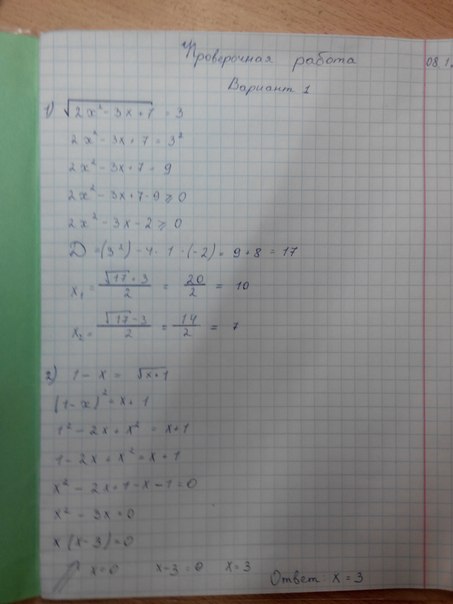 Проверочная работа
08.1.
Вариант 1
1) √(2x² - 3x + 7) = 3
2x² - 3x + 7 = 3²
2x² - 3x + 7 = 9
2x² - 3x + 7 - 9 ≥ 0
2x² - 3x - 2 ≥ 0
D = (3²) - 4 · 1 · (-2) = 9 + 8 = 17
x₁ = (√17 + 3)/2 = 20/2 = 10
x₂ = (√17 - 3)/2 = 14/2 = 7
2) 1 - x = √(x + 1)
(1 - x)² = x + 1
1² - 2x + x² = x + 1
1 - 2x + x² = x + 1
x² - 2x + 1 - x - 1 = 0
x² - 3x = 0
x (x - 3) = 0
x = 0 x - 3 = 0 x = 3
Ответ: x = 3